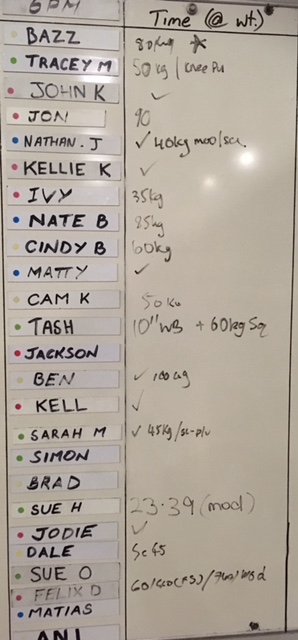 6PM Time (@ wt.)
BAZZ 80kg
TRACEY M 50kg / Knee PU
JOHN K ✓
JON 90
NATHAN. J ✓ 40kg mod/sc.
KELLIE K ✓
IVY 35kg
NATE B 85kg
CINDY B 60kg
MATTY ✓
CAM K 50kg
TASH 10" WB + 60kg Sq
JACKSON
BEN ✓ 100kg
KELL ✓
SARAH M ✓ 45kg/sc-p/u
SIMON
BRAD
SUE H 23.39 (mod)
JODIE ✓
DALE Sc 65
SUE O
FELIX D
MATIAS
ANI